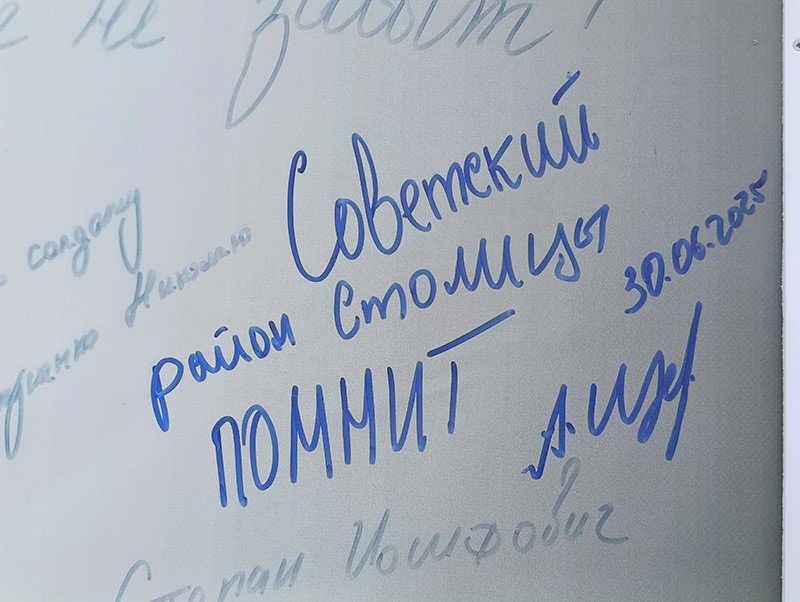 не забыт!
Советский
район столицы
30.06.2025
ПОМНИТ
солдату
Николаю
Степан Иосифович